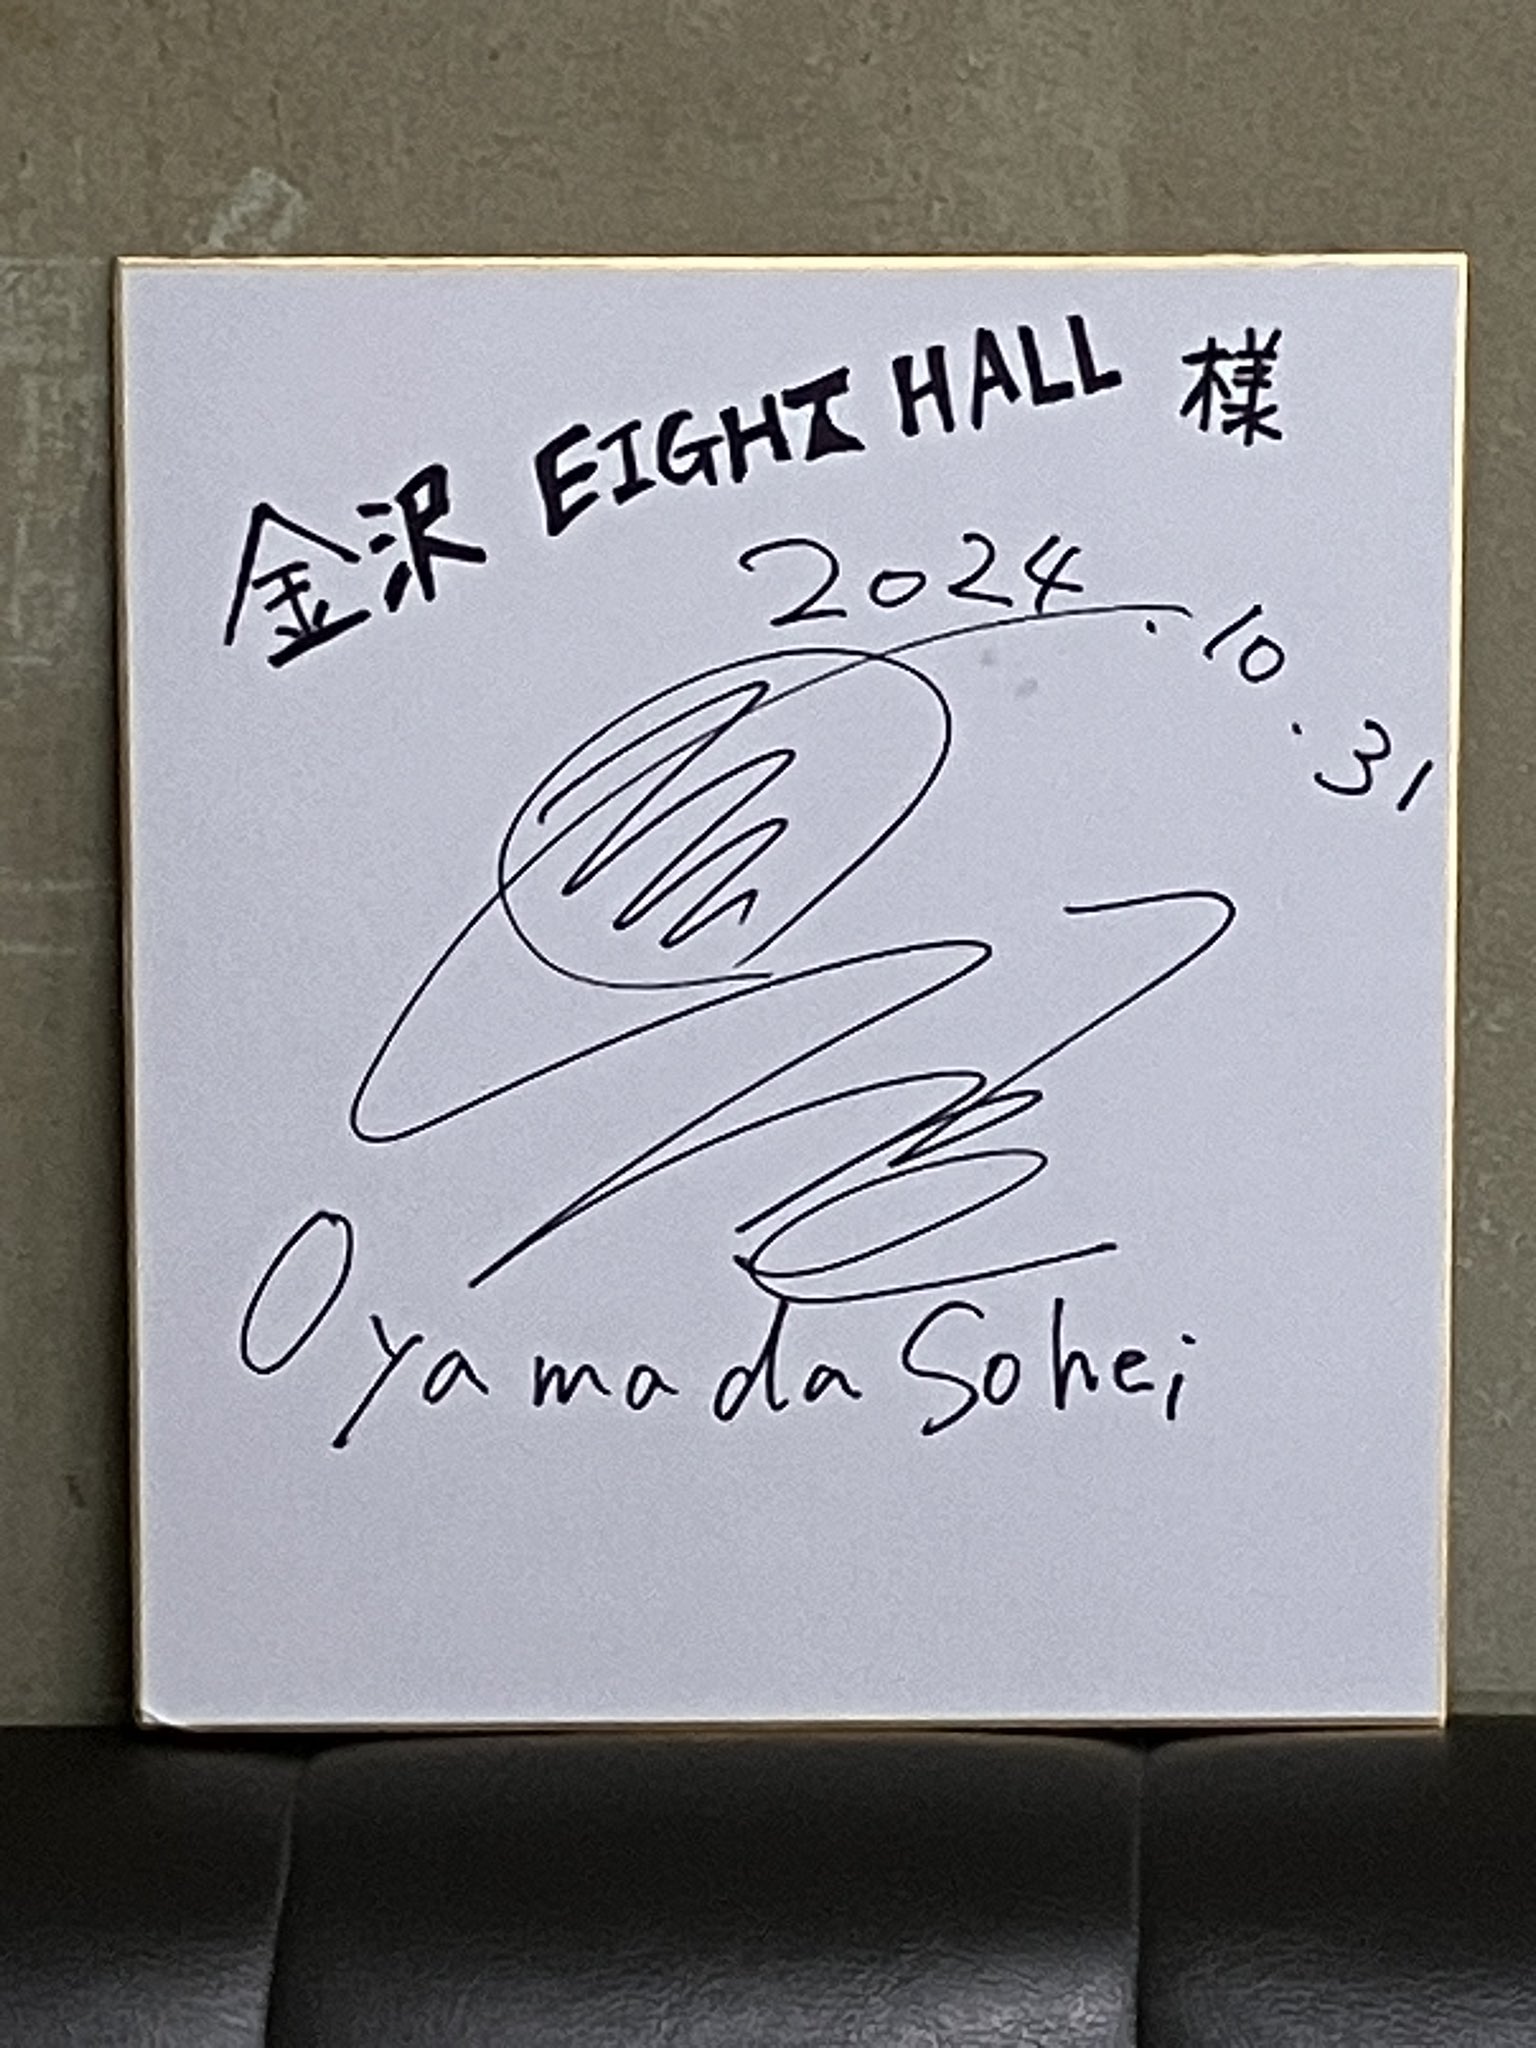 金沢 EIGHT HALL 様
2024.10.31
Oyamada Sohei